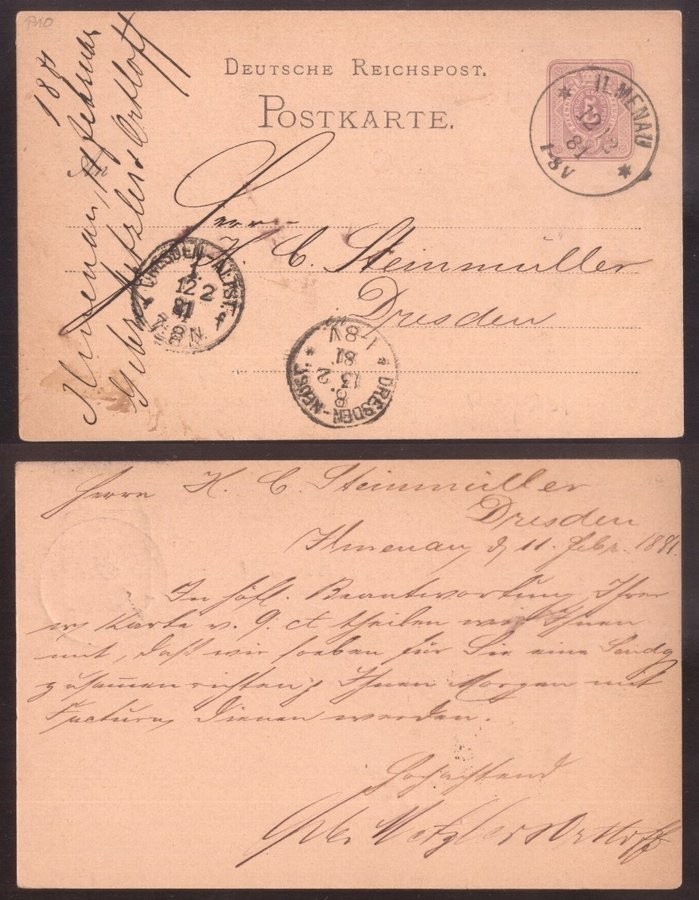 P10
DEUTSCHE REICHSPOST.
POSTKARTE.
5
ILMENAU
12 / 2
81
1-8V
1881
Ilmenau, 11 februar
Gebr. Metzler & Ortloff
An
Herrn
H. C. Steinmüller
Dresden
DRESDEN-ALTST.
12 2
81
7-8 N
DRESDEN-NEUST.
13. 2
81.
1-8V
Herrn H. C. Steinmüller
Dresden
Ilmenau, d. 11. febr. 1881.
In höfl. Beantwortung Ihrer
w. Karte v. 9. ct theilen wir Ihnen
mit, daß wir soeben für Sie eine Sendg
zusammenrichten & Ihnen Morgen mit
Factura dienen werden.
Hochachtend
Gebr. Metzler & Ortloff